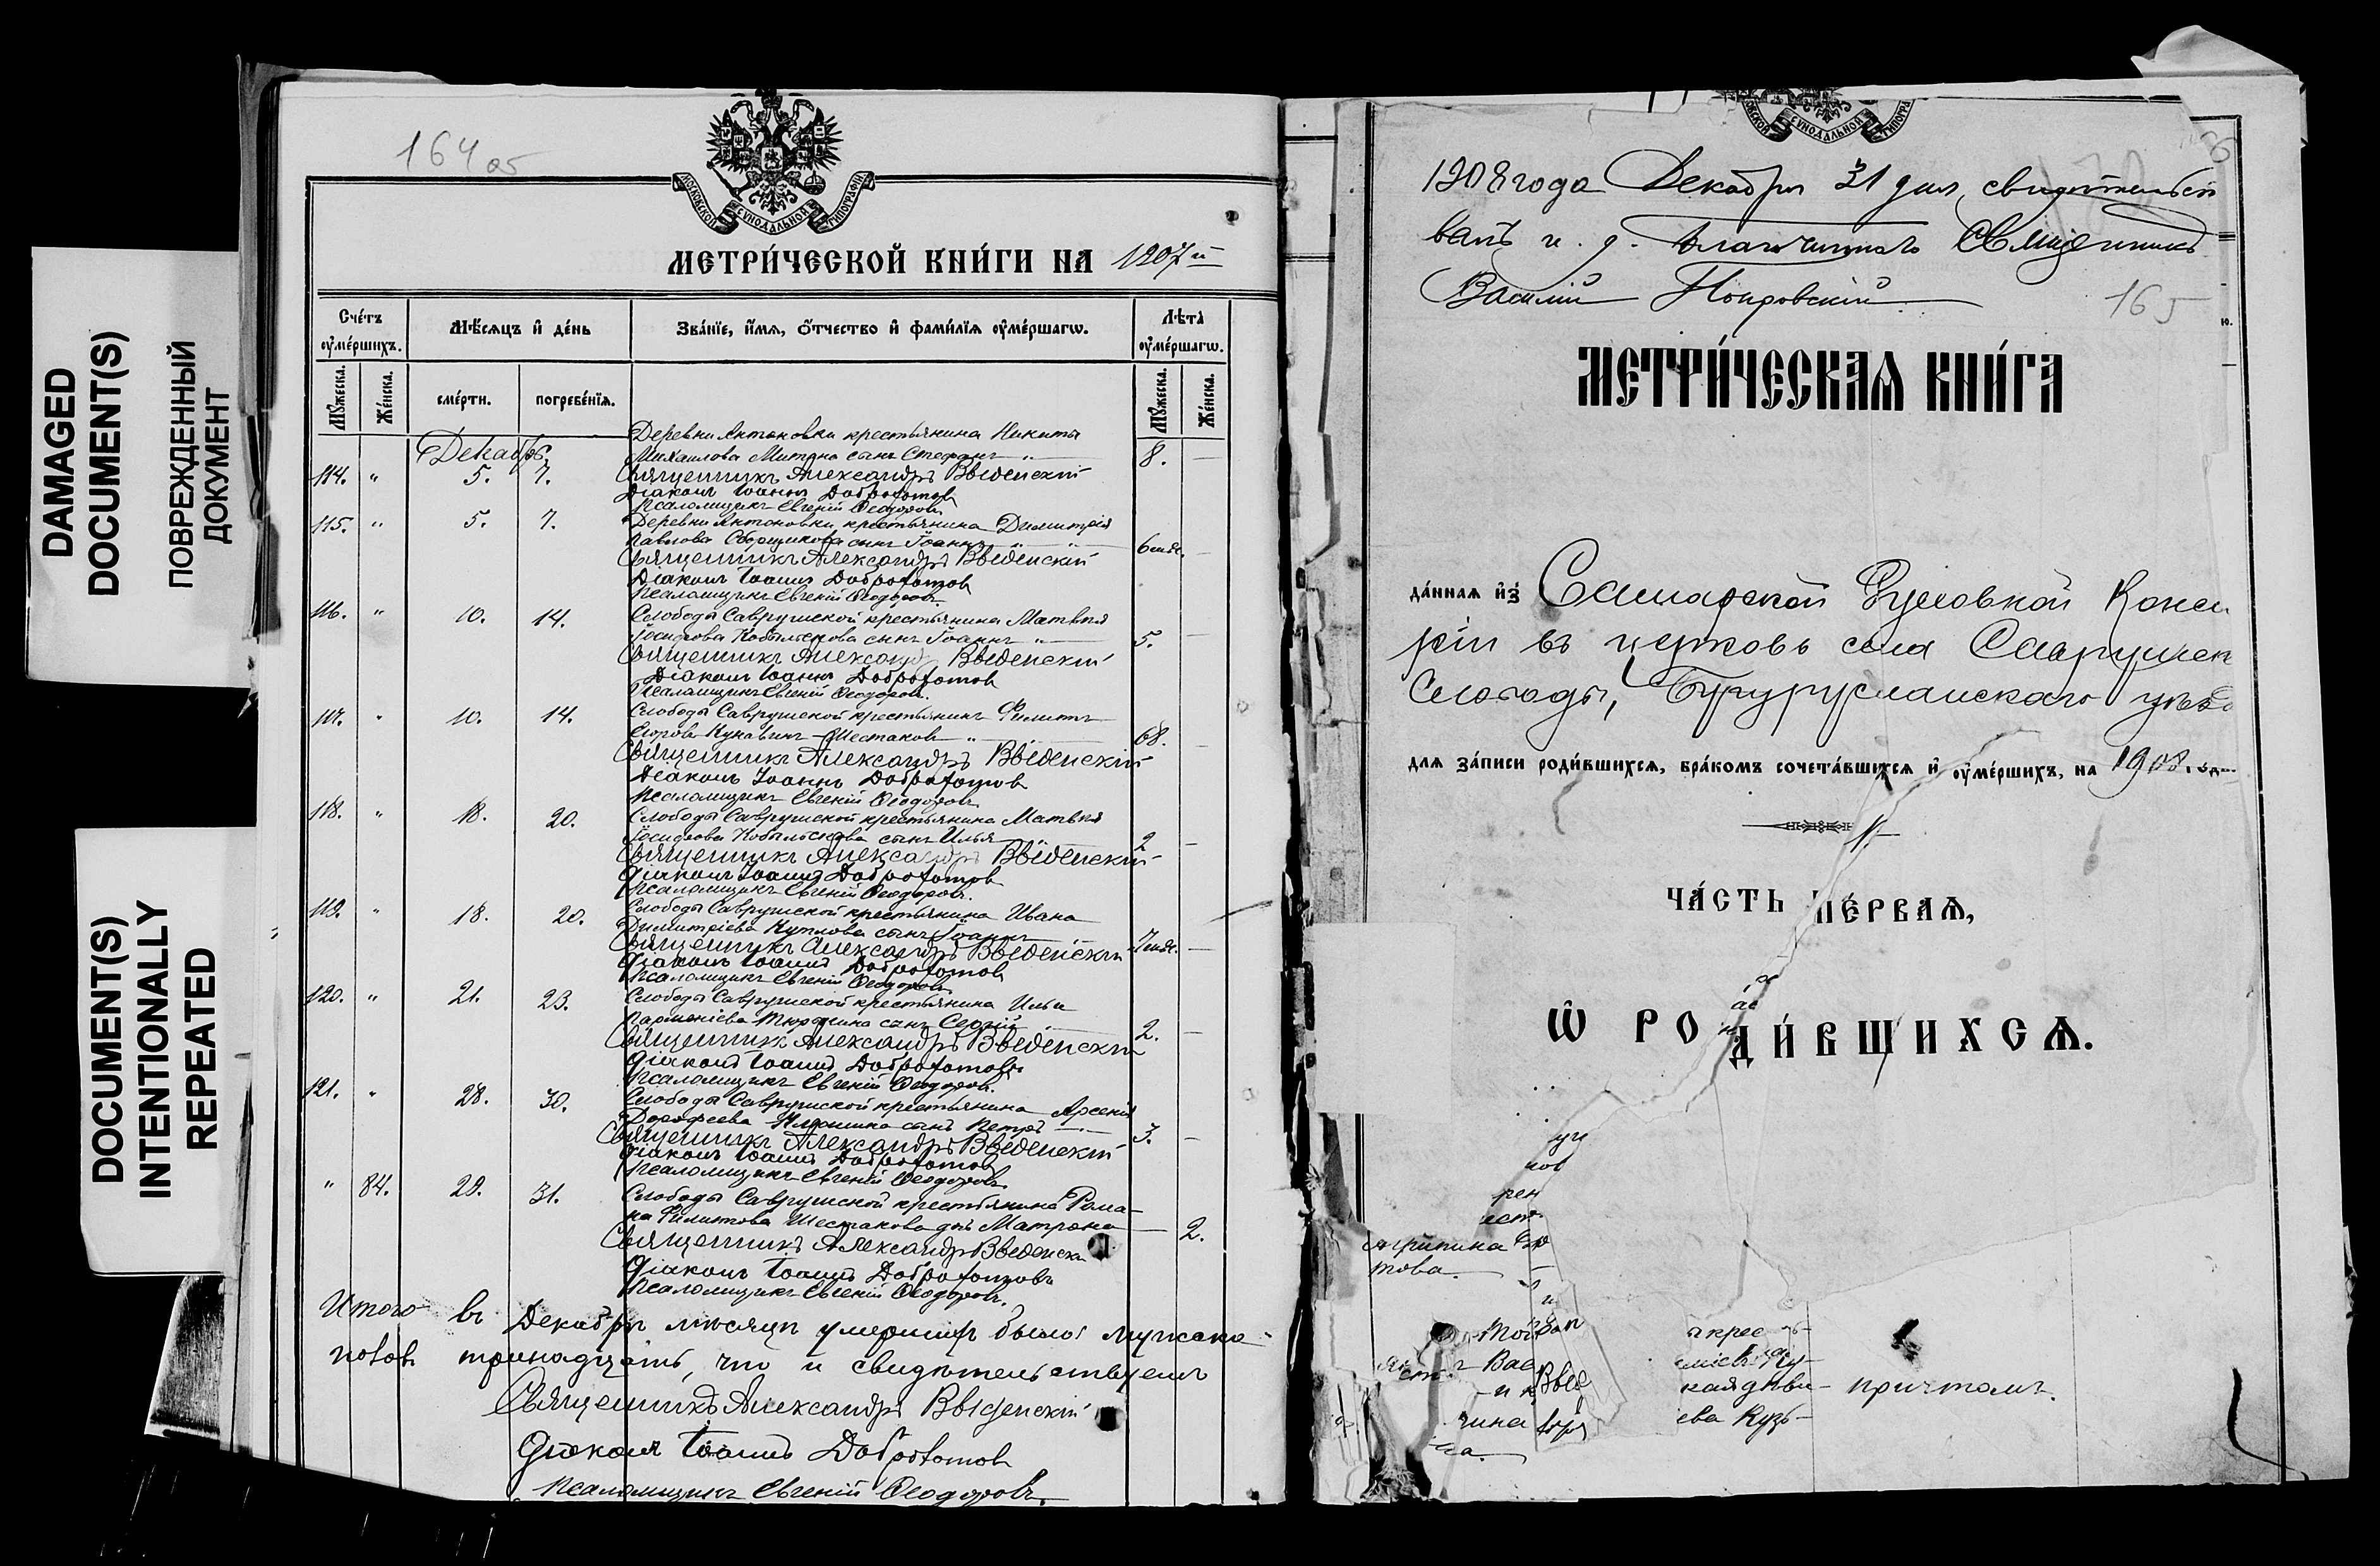 DAMAGED
DOCUMENT(S)
ПОВРЕЖДЕННЫЙ
ДОКУМЕНТ
DOCUMENT(S)
INTENTIONALLY
REPEATED
164 об
МОСКОВСКОЙ СѴНОДАЛЬНОЙ ТИПОГРАФІИ
МЕТРИ́ЧЕСКОЙ КНИ́ГИ НА 1907 й
Сче́тъ ᲂу҆ме́ршихъ.
Мѣ́сяцъ и҆ де́нь
Зва́нїе, и҆́мѧ, ѻ҆́тчество и҆ фами́лїѧ ᲂу҆ме́ршагѡ.
Лѣта̀ ᲂу҆ме́ршагѡ.
Мꙋ́жеска.
Же́нска.
сме́рти.
погребе́нїѧ.
Мꙋ́жеска.
Же́нска.
Декабрь.
Деревни Антоновки крестьянина Никиты
Михаилова Митина сынъ Стефанъ " 8. —
114. " 5. 7. Священникъ Александръ Введенскій
Діаконъ Іоаннъ Доброхотовъ
Псаломщикъ Евгеній Ѳеодоровъ
115. " 5. 7. Деревни Антоновки крестьянина Димитрія
Павлова сынъ Іоаннъ 6 —
Священникъ Александръ Введенскій
Діаконъ Іоаннъ Доброхотовъ
Псаломщикъ Евгеній Ѳеодоровъ.
116. " 10. 14. Слободы Саврушской крестьянина Матвѣя
Іосифова Кобыльскова сынъ Іоаннъ " 5. —
Священникъ Александръ Введенскій
Діаконъ Іоаннъ Доброхотовъ
Псаломщикъ Евгеній Ѳеодоровъ.
117. " 10. 14. Слободы Саврушской крестьянинъ Филиппъ
Егоровъ Шестаковъ " 68. —
Священникъ Александръ Введенскій
Діаконъ Іоаннъ Доброхотовъ
Псаломщикъ Евгеній Ѳеодоровъ
118. " 18. 20. Слободы Саврушской крестьянина Матвѣя
Іосифова Кобыльскова сынъ Илья 2 —
Священникъ Александръ Введенскій
Діаконъ Іоаннъ Доброхотовъ
Псаломщикъ Евгеній Ѳеодоровъ.
119. " 18. 20. Слободы Саврушской крестьянина Ивана
Димитріева сынъ Іоаннъ —
Священникъ Александръ Введенскій
Діаконъ Іоаннъ Доброхотовъ
Псаломщикъ Евгеній Ѳеодоровъ
120. " 21. 23. Слободы Саврушской крестьянина Ильи
Парменіева сынъ Сергій 2. —
Священникъ Александръ Введенскій
Діаконъ Іоаннъ Доброхотовъ
Псаломщикъ Евгеній Ѳеодоровъ.
121. " 28. 30. Слободы Саврушской крестьянина Арсенія
Дорофеева сынъ Петръ 3. —
Священникъ Александръ Введенскій
Діаконъ Іоаннъ Доброхотовъ
Псаломщикъ Евгеній Ѳеодоровъ
" 84. 29. 31. Слободы Саврушской крестьянина Рома-
на Филиппова Шестакова дчь Матрона — 2.
Священникъ Александръ Введенскі
Діаконъ Іоаннъ Доброхотовъ
Псаломщикъ Евгеній Ѳеодоровъ.
Итого въ Декабрѣ мѣсяцѣ умершихъ было: мужска-
тринадцать, что и свидѣтельствуемъ
Священникъ Александръ Введенскій
Діаконъ Іоаннъ Доброхотовъ
Псаломщикъ Евгеній Ѳеодоровъ.
СѴНОДАЛЬНОЙ
1908 года Декабря 31 дня, свидѣтельст
валъ и. д. благочиннаго Священникъ
Василій Покровскій
165
МЕТРИ́ЧЕСКАѦ КНИ́ГА
да́нная и҆з̾ Самарской Духовной Конси
рiи въ церковь села Саврушск
Слободы, Бугурусланскаго уѣзд
для за́писи роди́вшихсѧ, бра́комъ сочета́вшихсѧ и҆ ᲂу҆ме́ршихъ, на 1908.
ЧА́СТЬ ПЕ́РВАѦ,
Ѡ҆ РОДИ́ВШИХСѦ.
рен
Агрипина
това.
Вас
Введ
кая дѣви-
причтомъ.
ева Кузь-